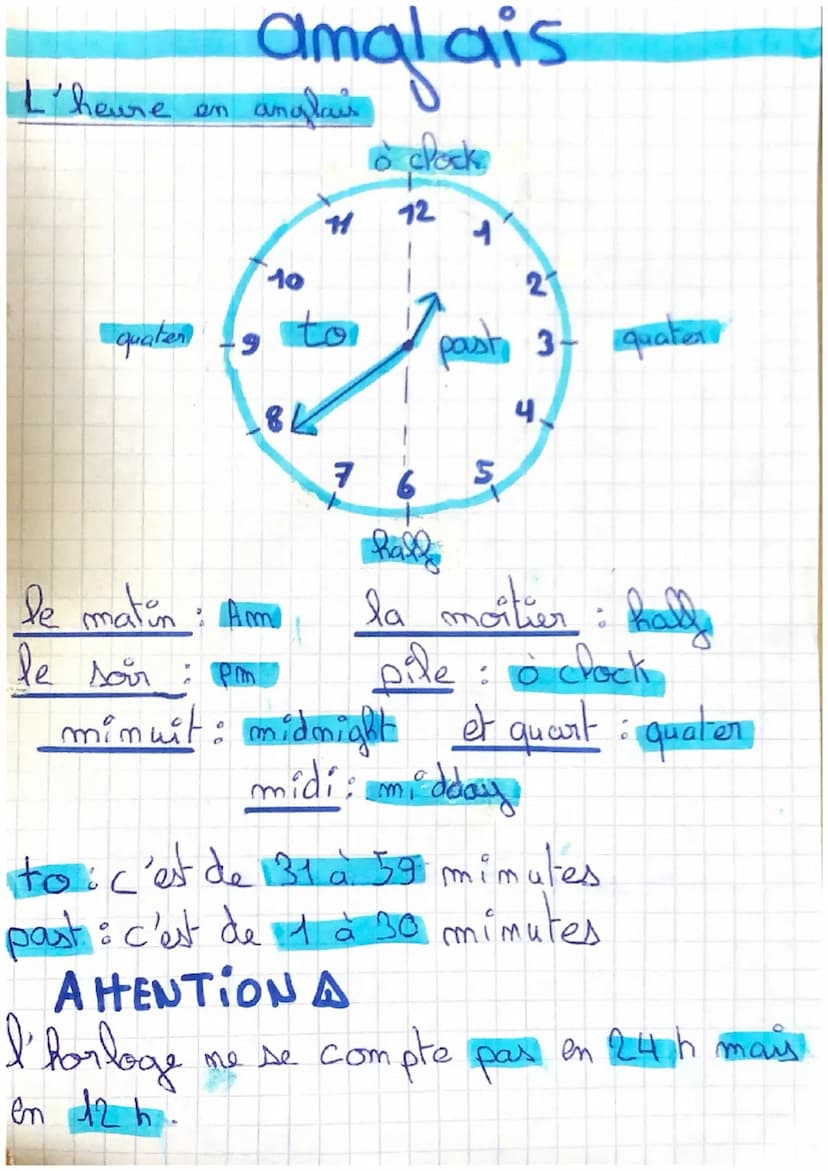 anglais
L'heure en anglais
ò clock
12
11 1
10 2
quater 9 to past 3 quater
8 4
7 5
6
half
le matin : Am la moîtier : half
le soir : pm pile : ò clock
minuit : midnight et quart : quater
midi : midday
to : c'est de 31 à 59 minutes
past : c'est de 1 à 30 minutes
ATTENTiON ⚠
l'horloge ne se compte pas en 24 h mais
en 12 h.